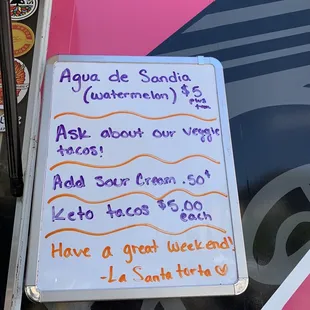 Agua de Sandia
(watermelon) $5
plus
tax
Ask about our veggie
tacos!
Add Sour Cream .50¢
Keto tacos $5.00
each
Have a great weekend!
-La Santa torta